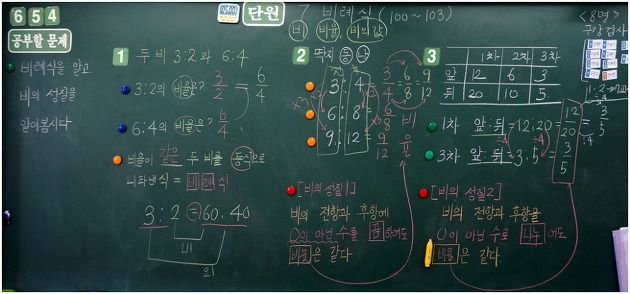 6 5 4
단원
7 비례식 (100~103)
비 비율 비의 값
<8명>
공부할 문제
비례식을 알고
비의 성질을
알아봅시다
1 두 비 3:2와 6:4
3:2의 비율은? 3/2 = 6/4
6:4의 비율은? 6/4
비율이 같은 두 비를 등식으로
나타낸 식 = 비례식
3:2=60:40
내
외
2
3:4 = 3/4 = 6/8 = 9/12
6:8 = 6/8
9:12 = 9/12
비율
[비의 성질1]
비의 전항과 후항에
0이 아닌 수를 곱하여도
비율은 같다
3
1차 2차 3차
앞 12 6 3
뒤 20 10 5
1차 앞:뒤=12:20 12/20
3차 앞:뒤=3:5 3/5
÷4
3/5
[비의 성질2]
비의 전항과 후항을
0이 아닌 수로 나누어도
비율은 같다.